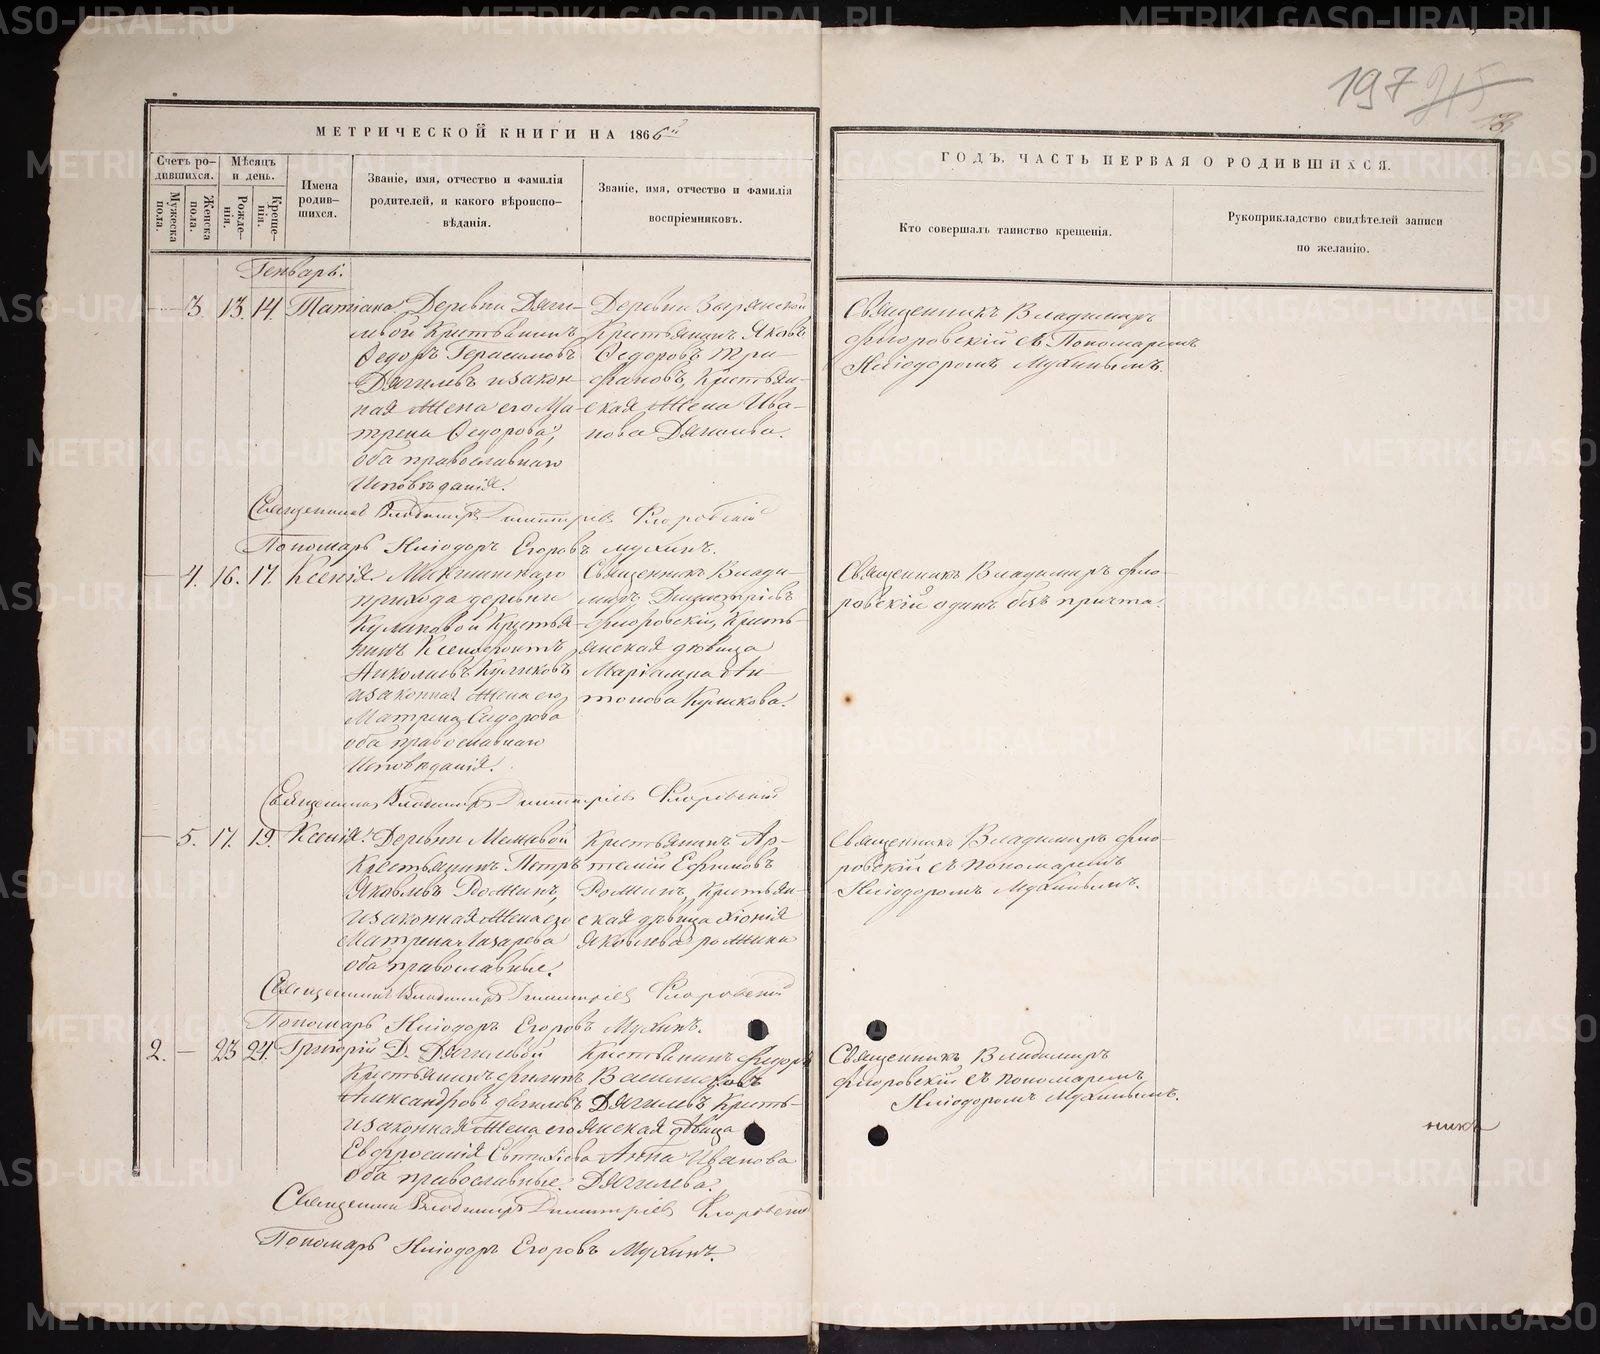 197 215
МЕТРИЧЕСКОЙ КНИГИ НА 1866й
ГОДЪ, ЧАСТЬ ПЕРВАЯ О РОДИВШИХСЯ.
Счетъ ро-
дившихся.
Мужеска
пола.
Женска
пола.
Мѣсяцъ
и день.
Рожде-
нія.
Креще-
нія.
Имена
родив-
шихся.
Званіе, имя, отчество и фамилія
родителей, и какого вѣроиспо-
вѣданія.
Званіе, имя, отчество и фамилія
воспріемниковъ.
Кто совершалъ таинство крещенія.
Рукоприкладство свидѣтелей записи
по желанію.
Генварь.
— 3. 13. 14. Татіана
Деревни Дяги-
левой Крестьянинъ
Федоръ Герасимовъ
Дягилевъ и закон-
ная жена его Ма-
трена Федорова,
оба православнаго
Исповѣданія.
Деревни Зырянской
Крестьянинъ Яковъ
Федоровъ Три-
фановъ, Крестьян-
ская жена Ива-
нова Дягилева.
Священникъ Владиміръ
Флоровскій съ Пономаремъ
Иліодоромъ Мухинымъ.
Священникъ Владиміръ Димитріевъ Флоровскій
Пономарь Иліодоръ Егоровъ Мухинъ.
— 4. 16. 17. Ксенія.
прихода деревни
Куликовой Крестья-
нинъ Ксенофонтъ
Николаевъ Куликовъ
и законная жена его
Матрена Сидорова
оба православнаго
Исповѣданія.
Священникъ Влади-
миръ Димитріевъ
Флоровскій, Кресть-
янская дѣвица
Маріамна Ан-
тонова Куликова.
Священникъ Владиміръ Фло-
ровскій одинъ безъ причта.
Священникъ Владиміръ Димитріевъ Флоровскій
— 5. 17. 19. Ксенія.
Деревни
Крестьянинъ Петръ
Яковлевъ Рожинъ,
и законная жена его
Матрена Лазарева
оба православные.
Крестьянинъ Ар-
темій Ефимовъ
Рожинъ, Крестьян-
ская дѣвица Хіонія
Яковлева Рожина
Священникъ Владиміръ Фло-
ровскій съ пономаремъ
Иліодоромъ Мухинымъ.
Священникъ Владиміръ Димитріевъ Флоровскій
Пономарь Иліодоръ Егоровъ Мухинъ.
2. — 23 24. Григорій
Д. Дягилевой
Крестьянинъ Филипъ
Александровъ Дягилевъ
и законная жена его
Евфросинія Евтихіева
оба православные.
Крестьянинъ Федоръ
Дягилевъ Кресть-
янская дѣвица
Анна Иванова
Дягилева.
Священникъ Владиміръ
Флоровскій съ пономаремъ
Иліодоромъ Мухинымъ.
никъ
Священникъ Владиміръ Димитріевъ Флоровскій
Пономарь Иліодоръ Егоровъ Мухинъ.